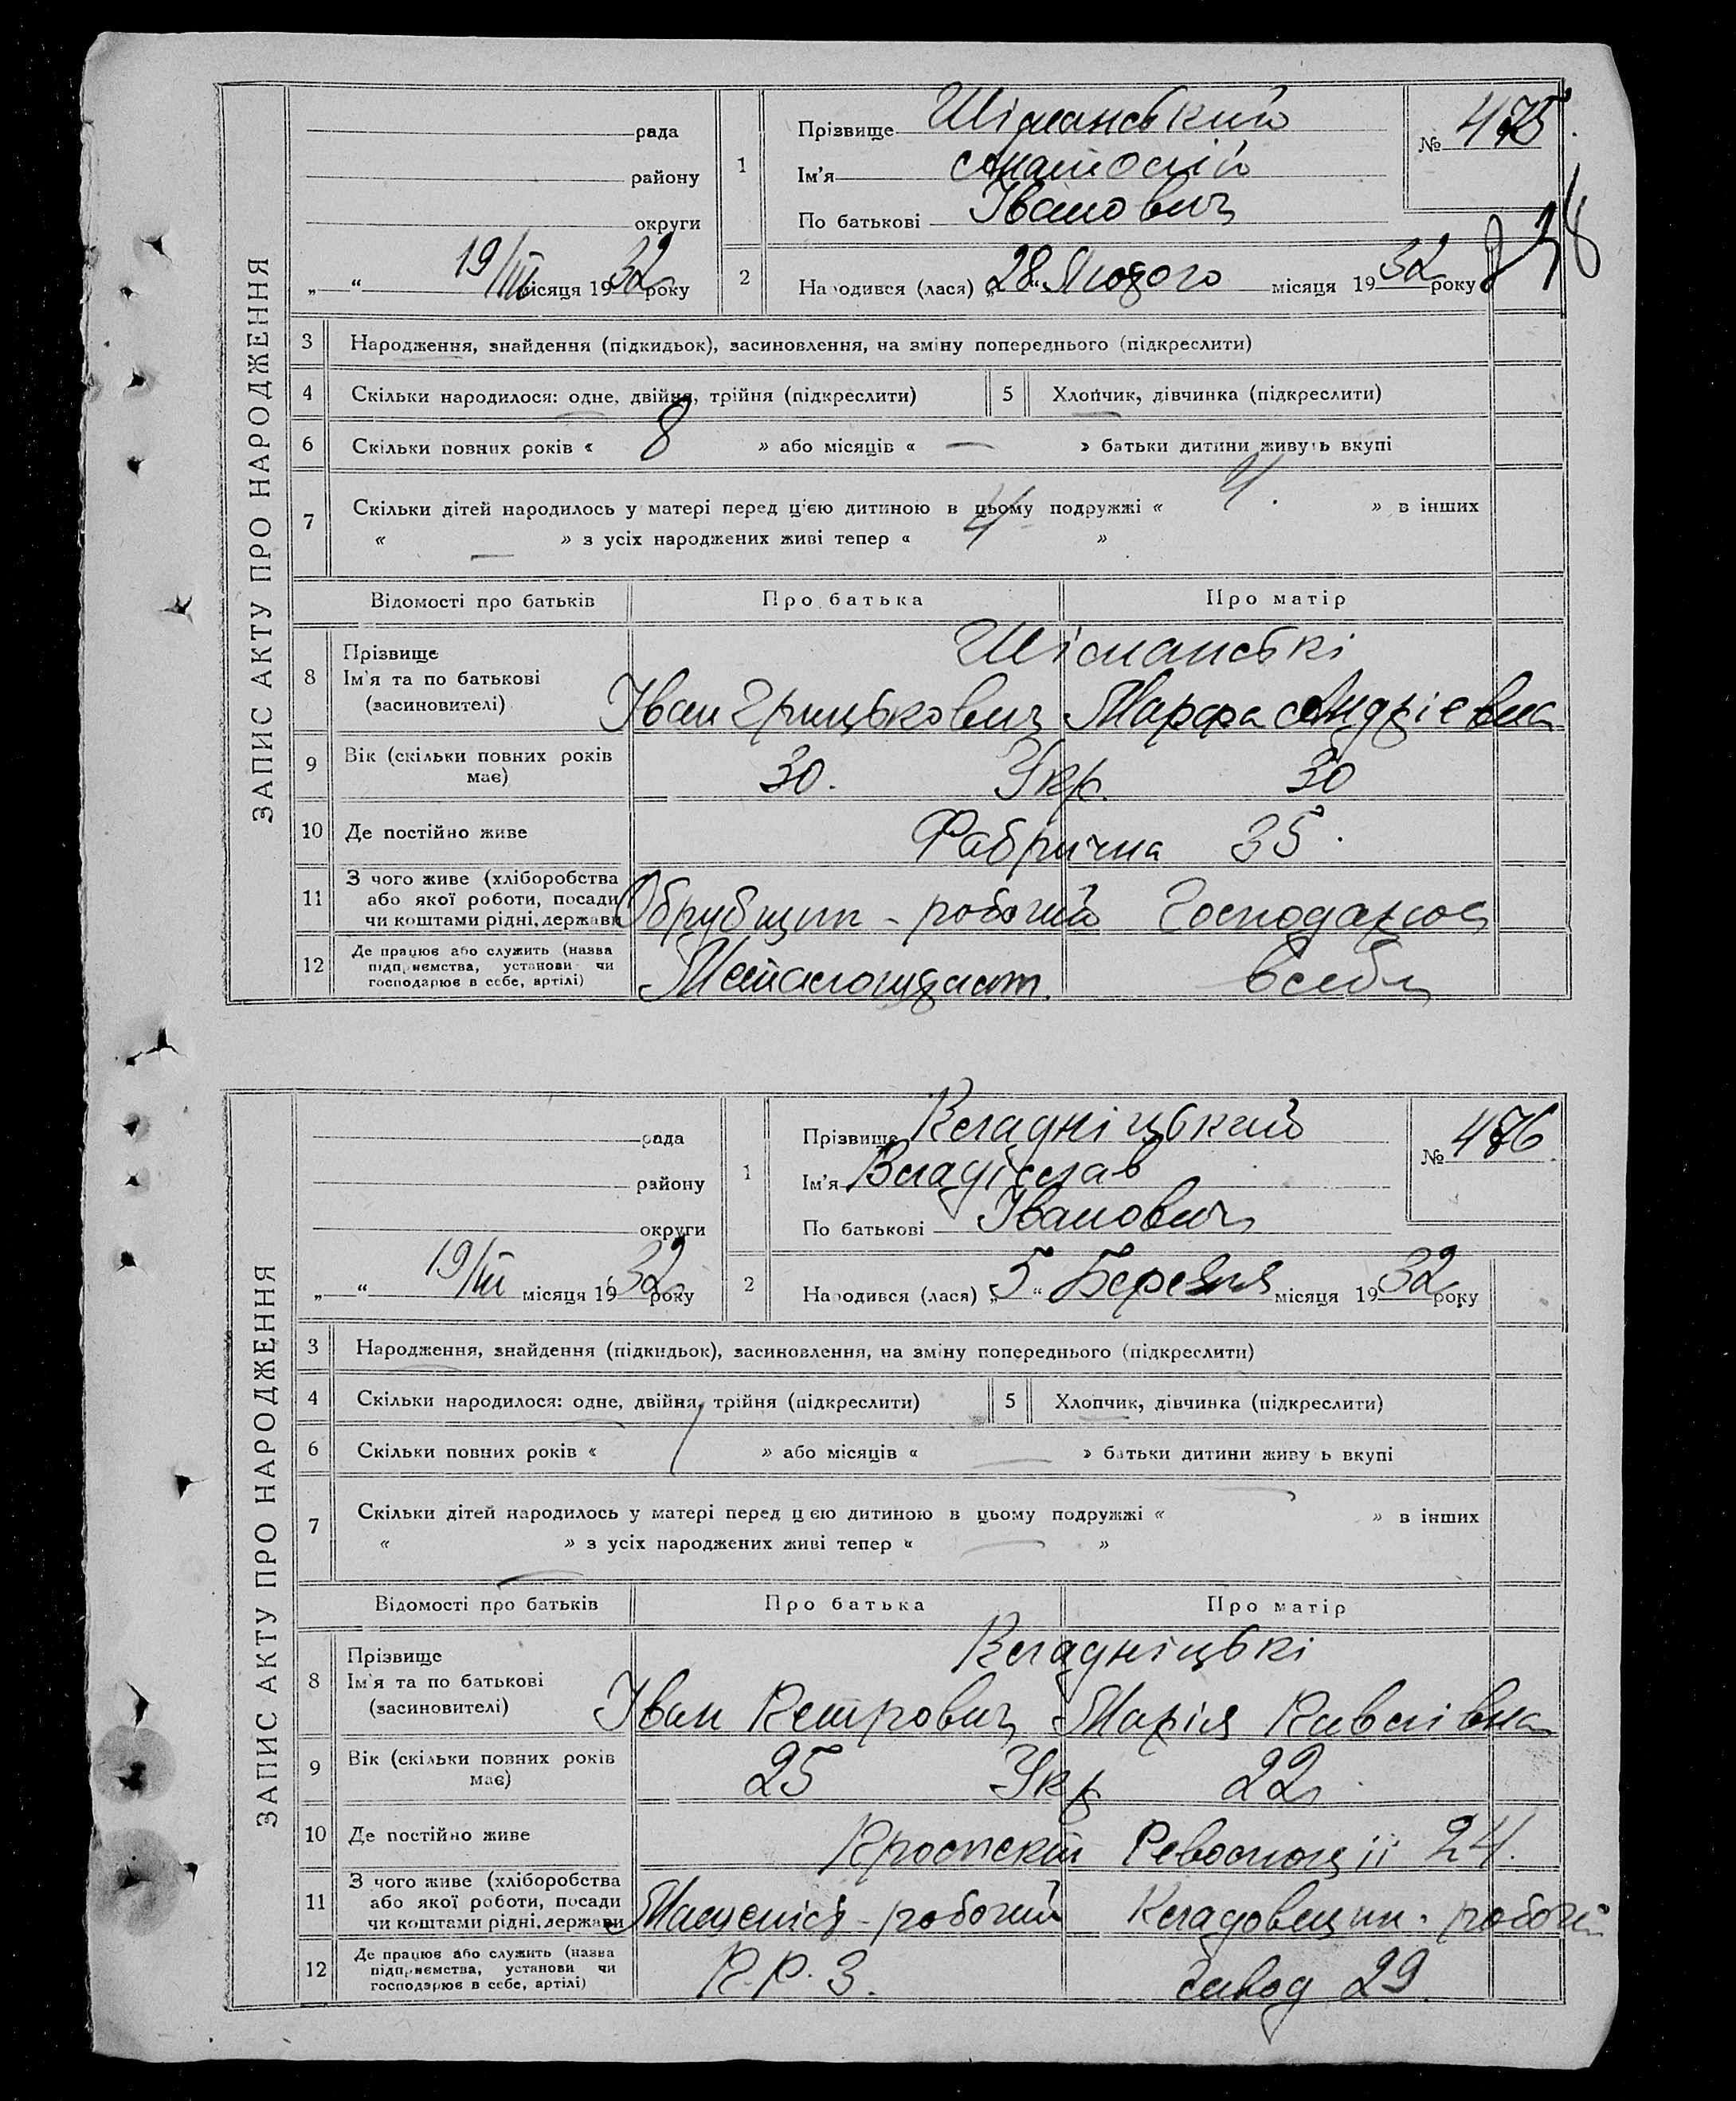 ЗАПИС АКТУ ПРО НАРОДЖЕННЯ
рада
району
округи
„ “ 19/III місяця 1932 року
1
Прізвище Шіманський
Ім'я Анатолій
По батькові Іванович
№ 475.
2 Народився (лася) „28“ Лютого місяця 1932 року
3 Народження, знайдення (підкидьок), засиновлення, на зміну попереднього (підкреслити)
4 Скільки народилося: одне, двійня, трійня (підкреслити) 5 Хлопчик, дівчинка (підкреслити)
6 Скільки повних років « 8 » або місяців « — » батьки дитини живуть вкупі
7 Скільки дітей народилось у матері перед цією дитиною в цьому подружжі « 4. » в інших
« — » з усіх народжених живі тепер « 4 »
Відомості про батьків Про батька Про матір
8 Прізвище Шіманські
Ім'я та по батькові Іван Грицькович Марфа Андрієвна
(засиновителі)
9 Вік (скільки повних років має) 30. Укр. 30
10 Де постійно живе Фабрична 35.
11 З чого живе (хліборобства або якої роботи, посади чи коштами рідні, держави Обрубщик - робочий Господарює
12 Де працює або служить (назва підприємства, установи чи господарює в себе, артілі) в себе
ЗАПИС АКТУ ПРО НАРОДЖЕННЯ
рада
району
округи
„ “ 19/III місяця 1932 року
1
Прізвище Кладніцький
Ім'я Владіслав
По батькові Іванович
№ 476.
2 Народився (лася) „5“ Березня місяця 1932 року
3 Народження, знайдення (підкидьок), засиновлення, на зміну попереднього (підкреслити)
4 Скільки народилося: одне, двійня, трійня (підкреслити) 5 Хлопчик, дівчинка (підкреслити)
6 Скільки повних років « 1 » або місяців « — » батьки дитини живуть вкупі
7 Скільки дітей народилось у матері перед цією дитиною в цьому подружжі « — » в інших
« — » з усіх народжених живі тепер « — »
Відомості про батьків Про батька Про матір
8 Прізвище Кладніцькі
Ім'я та по батькові Іван Петрович Марія Павлівна
(засиновителі)
9 Вік (скільки повних років має) 25 Укр 22
10 Де постійно живе Проспект Революції 24.
11 З чого живе (хліборобства або якої роботи, посади чи коштами рідні, держави робочий Кладовщик - робочий
12 Де працює або служить (назва підприємства, установи чи господарює в себе, артілі) П.Р.З. Завод 29.